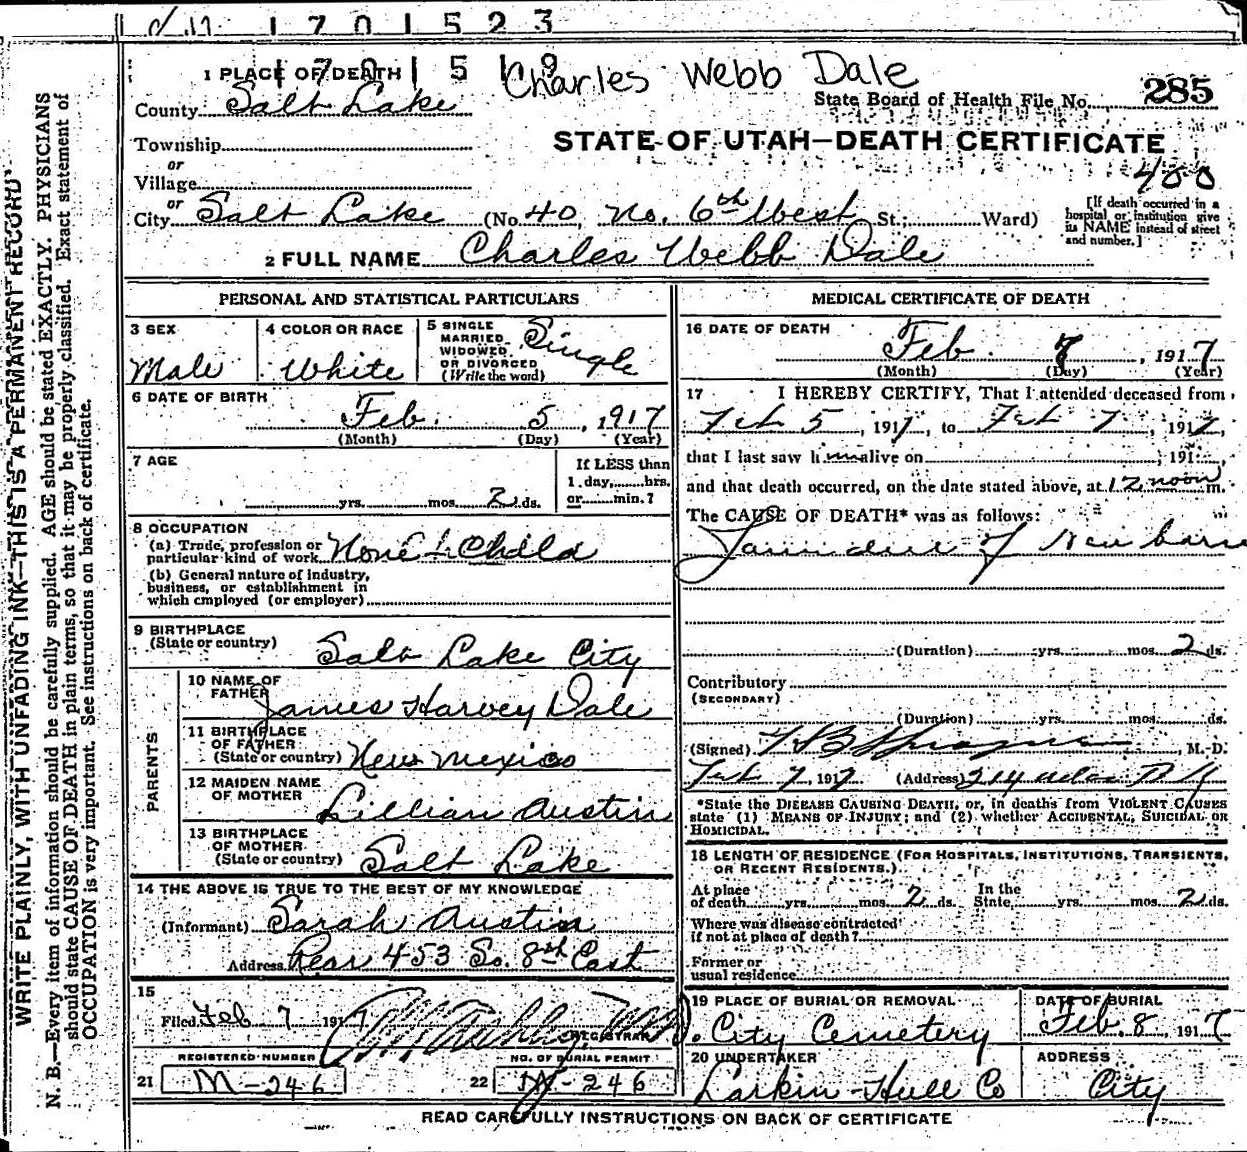 1701523
1701519
Charles Webb Dale
1 PLACE OF DEATH
State Board of Health File No. 285
County Salt Lake
STATE OF UTAH—DEATH CERTIFICATE
Township
or
Village
400
or
City Salt Lake (No. 40, No. 6th West St.; Ward)
[If death occurred in a
hospital or institution give
its NAME instead of street
and number.]
2 FULL NAME Charles Webb Dale
PERSONAL AND STATISTICAL PARTICULARS
3 SEX
Male
4 COLOR OR RACE
White
5 SINGLE
MARRIED
WIDOWED
OR DIVORCED
(Write the word)
Single
6 DATE OF BIRTH
Feb. 5, 1917
(Month) (Day) (Year)
7 AGE
yrs. mos. 2 ds.
If LESS than
1 day, hrs.
or min.?
8 OCCUPATION
(a) Trade, profession or
particular kind of work None - Child
(b) General nature of industry,
business, or establishment in
which employed (or employer)
9 BIRTHPLACE
(State or country) Salt Lake City
PARENTS
10 NAME OF
FATHER James Harvey Dale
11 BIRTHPLACE
OF FATHER
(State or country) New Mexico
12 MAIDEN NAME
OF MOTHER Lillian Austin
13 BIRTHPLACE
OF MOTHER
(State or country) Salt Lake
14 THE ABOVE IS TRUE TO THE BEST OF MY KNOWLEDGE
(Informant) Sarah Austin
Address Rear 453 So. 8th East
15
Filed Feb 7 1917
REGISTRAR
REGISTERED NUMBER
21 M-246
NO. OF BURIAL PERMIT
22 M-246
MEDICAL CERTIFICATE OF DEATH
16 DATE OF DEATH
Feb. 7, 1917
(Month) (Day) (Year)
17 I HEREBY CERTIFY, That I attended deceased from
Feb 5, 1917, to Feb 7, 1917,
that I last saw h alive on , 191 ,
and that death occurred, on the date stated above, at 12 noon m.
The CAUSE OF DEATH* was as follows:
Jaundice of New born
(Duration) yrs. mos. 2 ds.
Contributory
(SECONDARY)
(Duration) yrs. mos. ds.
(Signed) , M.D.
Feb 7, 1917 (Address) 214
*State the DISEASE CAUSING DEATH, or, in deaths from VIOLENT CAUSES
state (1) MEANS OF INJURY; and (2) whether ACCIDENTAL, SUICIDAL OR
HOMICIDAL.
18 LENGTH OF RESIDENCE (FOR HOSPITALS, INSTITUTIONS, TRANSIENTS,
OR RECENT RESIDENTS.)
At place In the
of death yrs. mos. 2 ds. State yrs. mos. 2 ds.
Where was disease contracted
if not at place of death?
Former or
usual residence
19 PLACE OF BURIAL OR REMOVAL
City Cemetery
DATE OF BURIAL
Feb. 8, 1917
20 UNDERTAKER
Larkin-Hull Co
ADDRESS
City
READ CAREFULLY INSTRUCTIONS ON BACK OF CERTIFICATE
WRITE PLAINLY, WITH UNFADING INK—THIS IS A PERMANENT RECORD
N. B.—Every item of information should be carefully supplied. AGE should be stated EXACTLY. PHYSICIANS
should state CAUSE OF DEATH in plain terms, so that it may be properly classified. Exact statement of
OCCUPATION is very important. See instructions on back of certificate.